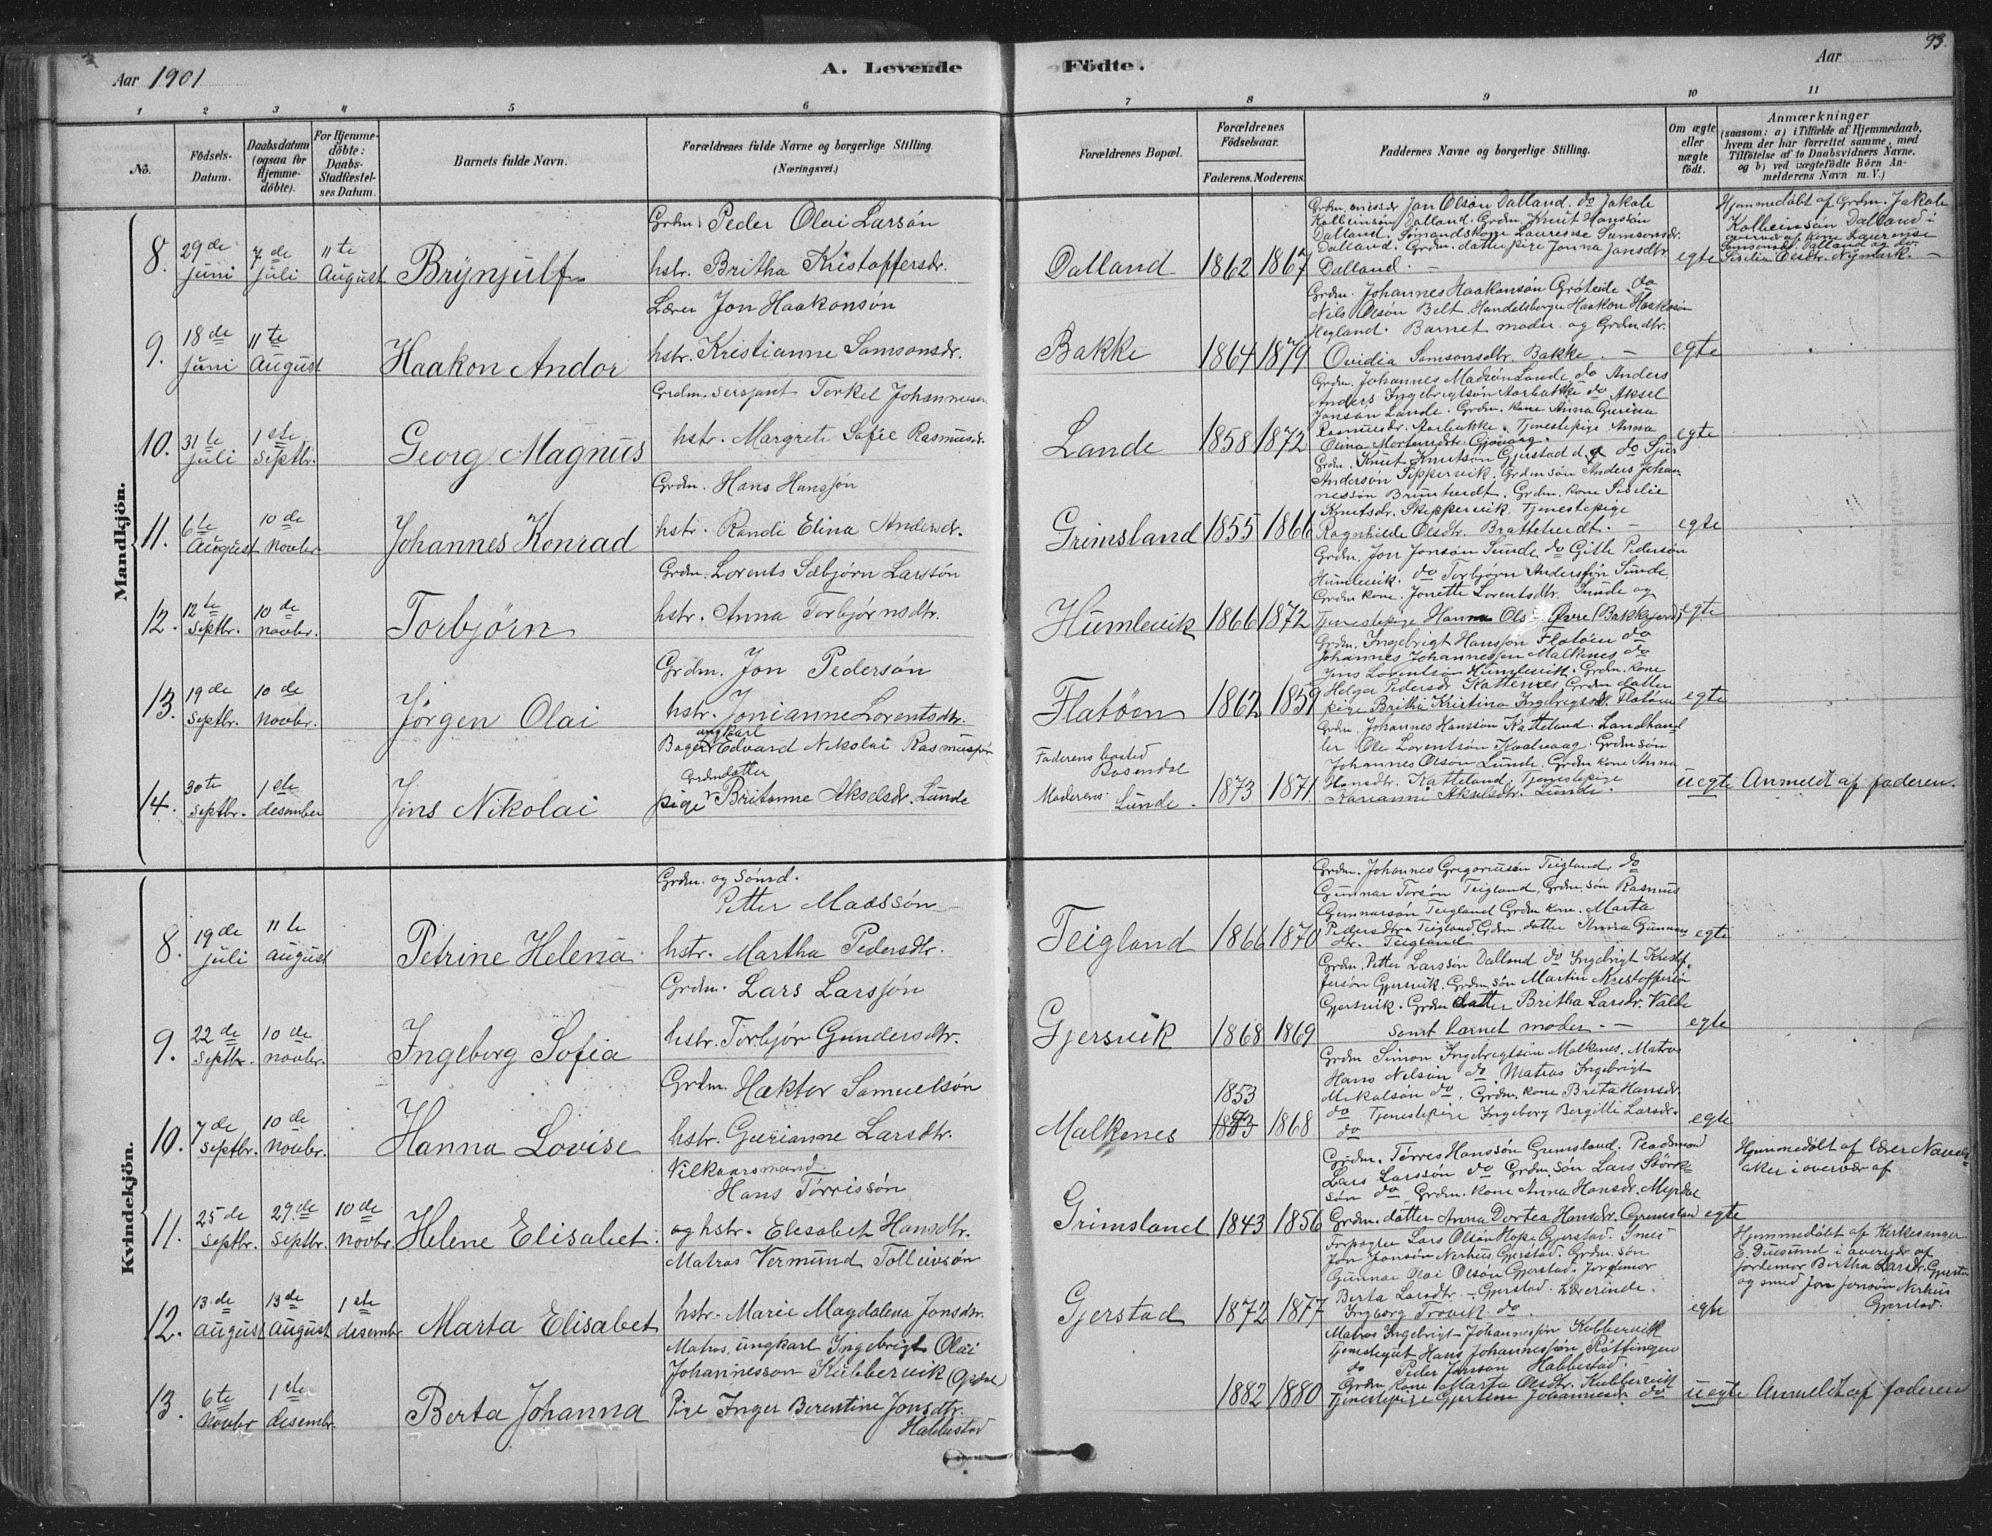 Aar 1901
A. Levende Födte.
Aar
93.
1 2 3 4 5 6 7 8 9 10 11
No.
Födsels-Datum.
Daabsdatum (ogsaa for Hjemme-döbte).
For Hjemme-döbte: Daabs-Stadfæstel-ses Datum.
Barnets fulde Navn.
Forældrenes fulde Navne og borgerlige Stilling. (Næringsvei.)
Forældrenes Bopæl.
Forældrenes Födselsaar.
Faderens. Moderens.
Faddernes Navne og borgerlige Stilling.
Om ægte eller uægte födt.
Anmærkninger
(saasom: a) i Tilfælde af Hjemmedaab, hvem der har forrettet samme, med Tilföielse af to Daabsvidners Navne, og b) ved uægtefödte Börn An-melderens Navn m. V.)
Mandkjön.
8. 29de Juni 7de Juli 11te August Brynjulf
Grdm. Peder Olai Larsön
hstr. Britha Kristoffersdr.
Dalland 1862 1867
Jon Olsön Dalland. do Jakale
Kolbeinsön Dalland. Grdm. Knut Hanssön
Dalland. Sömandskone Laurense Samsonsdr.
Dalland. Grdm. datter pige Jonna Jansdtr.
Dalland. —
egte
Hjemmedöbt af Grdm. Jakale
Kolbeinsön Dalland i
overvær af kone Laurense
Samsonsdr. Dalland og do.
Sisilia Olsdtr. Nymark. —
9. 18de Juni 11te August Haakon Andor
Lærer Jon Haakonsön
hstr. Kristianne Samsonsdr.
Bakke 1864 1879
Grdm. Johannes Haakonsön Gröteide. do
Nils Olsön Belt. Handelsborger Haakon Haakonsön
Hegland. Barnet moder og Grdm dtr.
Ovidia Samsonsdtr. Bakke. —
egte
10. 31te Juli 1ste Septbr. Georg Magnus
Grdm. Sersjant Torkel Johannessen
hstr. Margrete Sofie Rasmusdr.
Lande 1858 1872
Grdm. Johannes Madsön Lande do Anders
Anders Ingebrigtsön Aarbakke do Aksel
Jonson Lande. Grdm. kone Anna Gurina
Rasmusdr. Aarbakke. Tjenestepige Anna
Olina Mortensdtr. Gjövaag.
egte
11. 6te August 10de Novbr. Johannes Konrad
Grdm. Hans Hansjön
hstr. Randi Elina Andersdr.
Grimsland 1855 1866
Grdm. Knut Knutsön Gjerstad do Sjur
Andersön Skippervik. Grdm sön Anders Johan-
nessön Bruntveidt. Grdm. kone Siselie
Knutsdr. Skippervik. Tjenestepige
Ragnhilde Olsdtr. Bratteteidt. —
egte
12. 12te Septbr. 10de Novbr. Torbjörn
Grdm. Lorents Sæbjörn Larssön
hstr. Anna Torbjörnsdtr.
Humlevik 1866 1872
Grdm. Jon Jonsön Sunde do Gitle Pedersön
Humlevik. do Torbjörn Andersjön Sunde.
Grdm kone. Jonette Lorentsdtr. Sunde og
Tjenestepige Hanna Ols Övre (Bakkejord)
egte
13. 19de Septbr. 10de Novbr. Jörgen Olai
Grdm. Jon Pedersön
hstr. Jonianne Lorentsdtr.
Flatöen 1862 1859
Grdm. Ingebrigt Hansjon Flatöen do
Johannes Johannesjen Malknes do
Jens Lorentsön Humlevik. Grdm. kone
Helga Pedersdr Katteneset Grdm datter
pige Britha Kristina Ingebrigtsdtr. Flatöen
egte
14. 30te Septbr. 1ste desember Jens Nikolai
Bager ungkarl Edvard Nikolai Rasmussön
Grdmdatter
pige Britanne Akselsdr. Lunde
Faderens bosted Rosendal
Moderens: Lunde.
1873 1871
Grdm. Johannes Hansson Katteland. Landhand-
ler Ole Lorentsön Kaalvaag. Grdm sön
Johannes Olsön Lunde. Grdm kone Anna
Hansdtr. Katteland. Tjenestepige
Karianne Akselsdtr. Lunde.
uegte Anmeldt af faderen.
Kvindekjön.
8. 19de Juli 11te August Petrine Helena
Grdm. og Sömd.
Petter Madssön
hstr. Martha Pedersdtr.
Teigland 1866 1870
Grdm. Johannes Gregoriusen Teigland do
Gunnar Torsön Teigland, Grdm. sön Rasmus
Gunnarsön Teigland Grdm kone. Marta
Pedersdtr. Teigland. Grdm. datter Anna Gunnars-
dtr. Teigland
egte
9. 22de Septbr. 10de Novbr. Ingeborg Sofia
Grdm. Lars Larsjön
hstr. Torbjör Gundersdtr.
Gjersvik 1868 1869
Grdm. Petter Larssön Dalland do Ingebrigt Kristof-
fersön Gjersvik. Grdm. sön Martin Kristoffersön
Gjersvik. Grdm datter Britha Larsdr. Valde
samt barnet moder. —
egte
10. 7de Septbr. 10de Novbr. Hanna Lovise
Grdm. Hæktor Samuelsön
hstr. Gurianne Larsdtr.
Malkenes 1853 1868
Grdm Simon Ingebrigtsön Malkenes. Matros
Hans Nilsön do. Matros Ingebrigt
Mikalsön do. Grdm. kone Breta Hansdr.
do Tjenestepige Ingeborg Bergitte Larsdr.
do
egte
11. 25de Septbr. 29de Septbr. 10de Novbr. Helene Elisabet
Vilkaarsmand.
Hans Törrissön
og hstr. Elesabet Hansdtr.
Grimsland 1843 1856
Grdm. Törres Hanssön Grimsland. Pladsmand
Lars Larssön do Grdm. sön Lars Störk-
sön do. Grdm. kone Anna Hansdr. Myrdal
Grdm. datter Anna Dortea Hansdr. Grimsland
egte
Hjemmedöbt af Lærer
aker i overvær af
12. 13de August 13de August 1ste desembr. Marta Elisabet
Matros Vermund Tollivsön
hstr. Marie Magdalena Jonsdtr.
Gjerstad 1872 1877
Lars Olsön Hope Gjerstad. Smed
Jon Jonsön Nerhus Gjerstad. Grdm. sön
Gunnar Olai Olsön Gjerstad. Jordemor
Berta Larsdtr. Gjerstad. Lærerinde.
Ingborg do.
egte
Hjemmedöbt af Kirkesanger
E. Duesund i overvær af
Jordemor Bertha Larsdtr. Gjerstad
og smed Jon Jonsön Nerhus
Gjerstad.
13. 6te Novbr. 1ste desembr. Berta Johanna
Matros, ungkarl Ingebrigt Olai
Johannesson Kubbervik (Opdal)
Pige Inger Berentine Jonsdtr.
Habbestad
1882 1880
Matros Ingebrigt Johannesjön Kubbervik
Tjenestegut Hans Johannesjön Röttingen
do Peder Jonson Habbestad.
Grdm kone Marta Olsdtr. Kubbervik
Tjenestepige Gjertine Johannesdr do
uegte Anmeldt af faderen